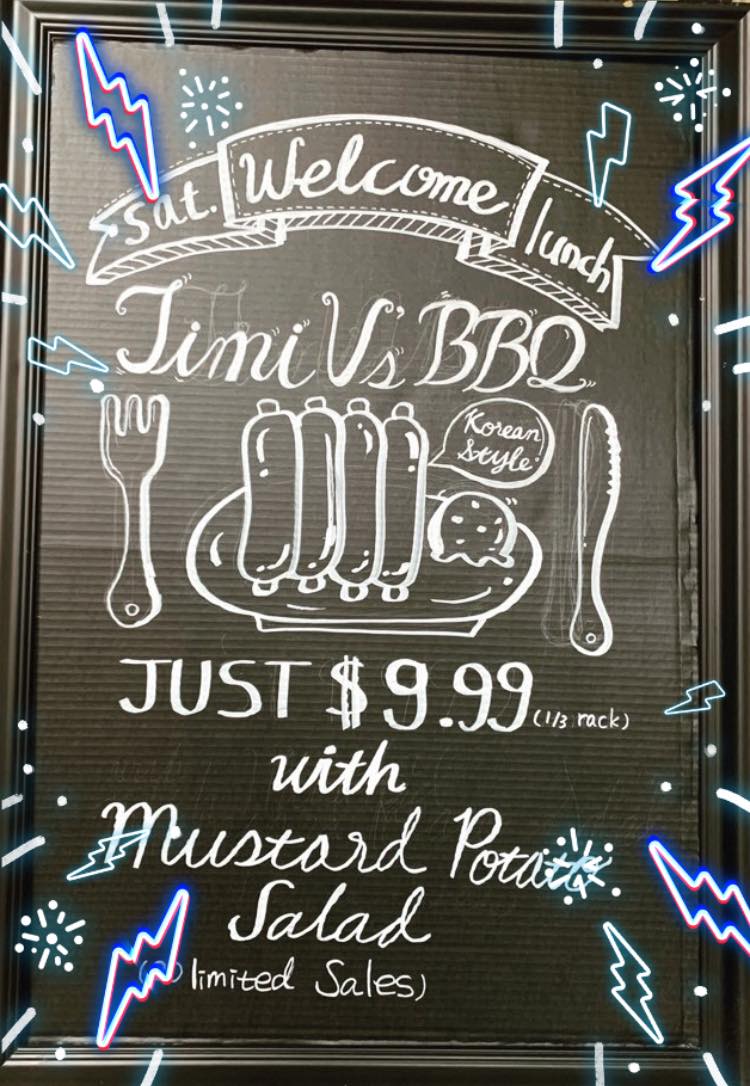 Sat. Welcome lunch
Timi Vs' BBQ
Korean
Style
JUST $9.99 (1/3 rack)
with
Mustard Potato
Salad
limited Sales)